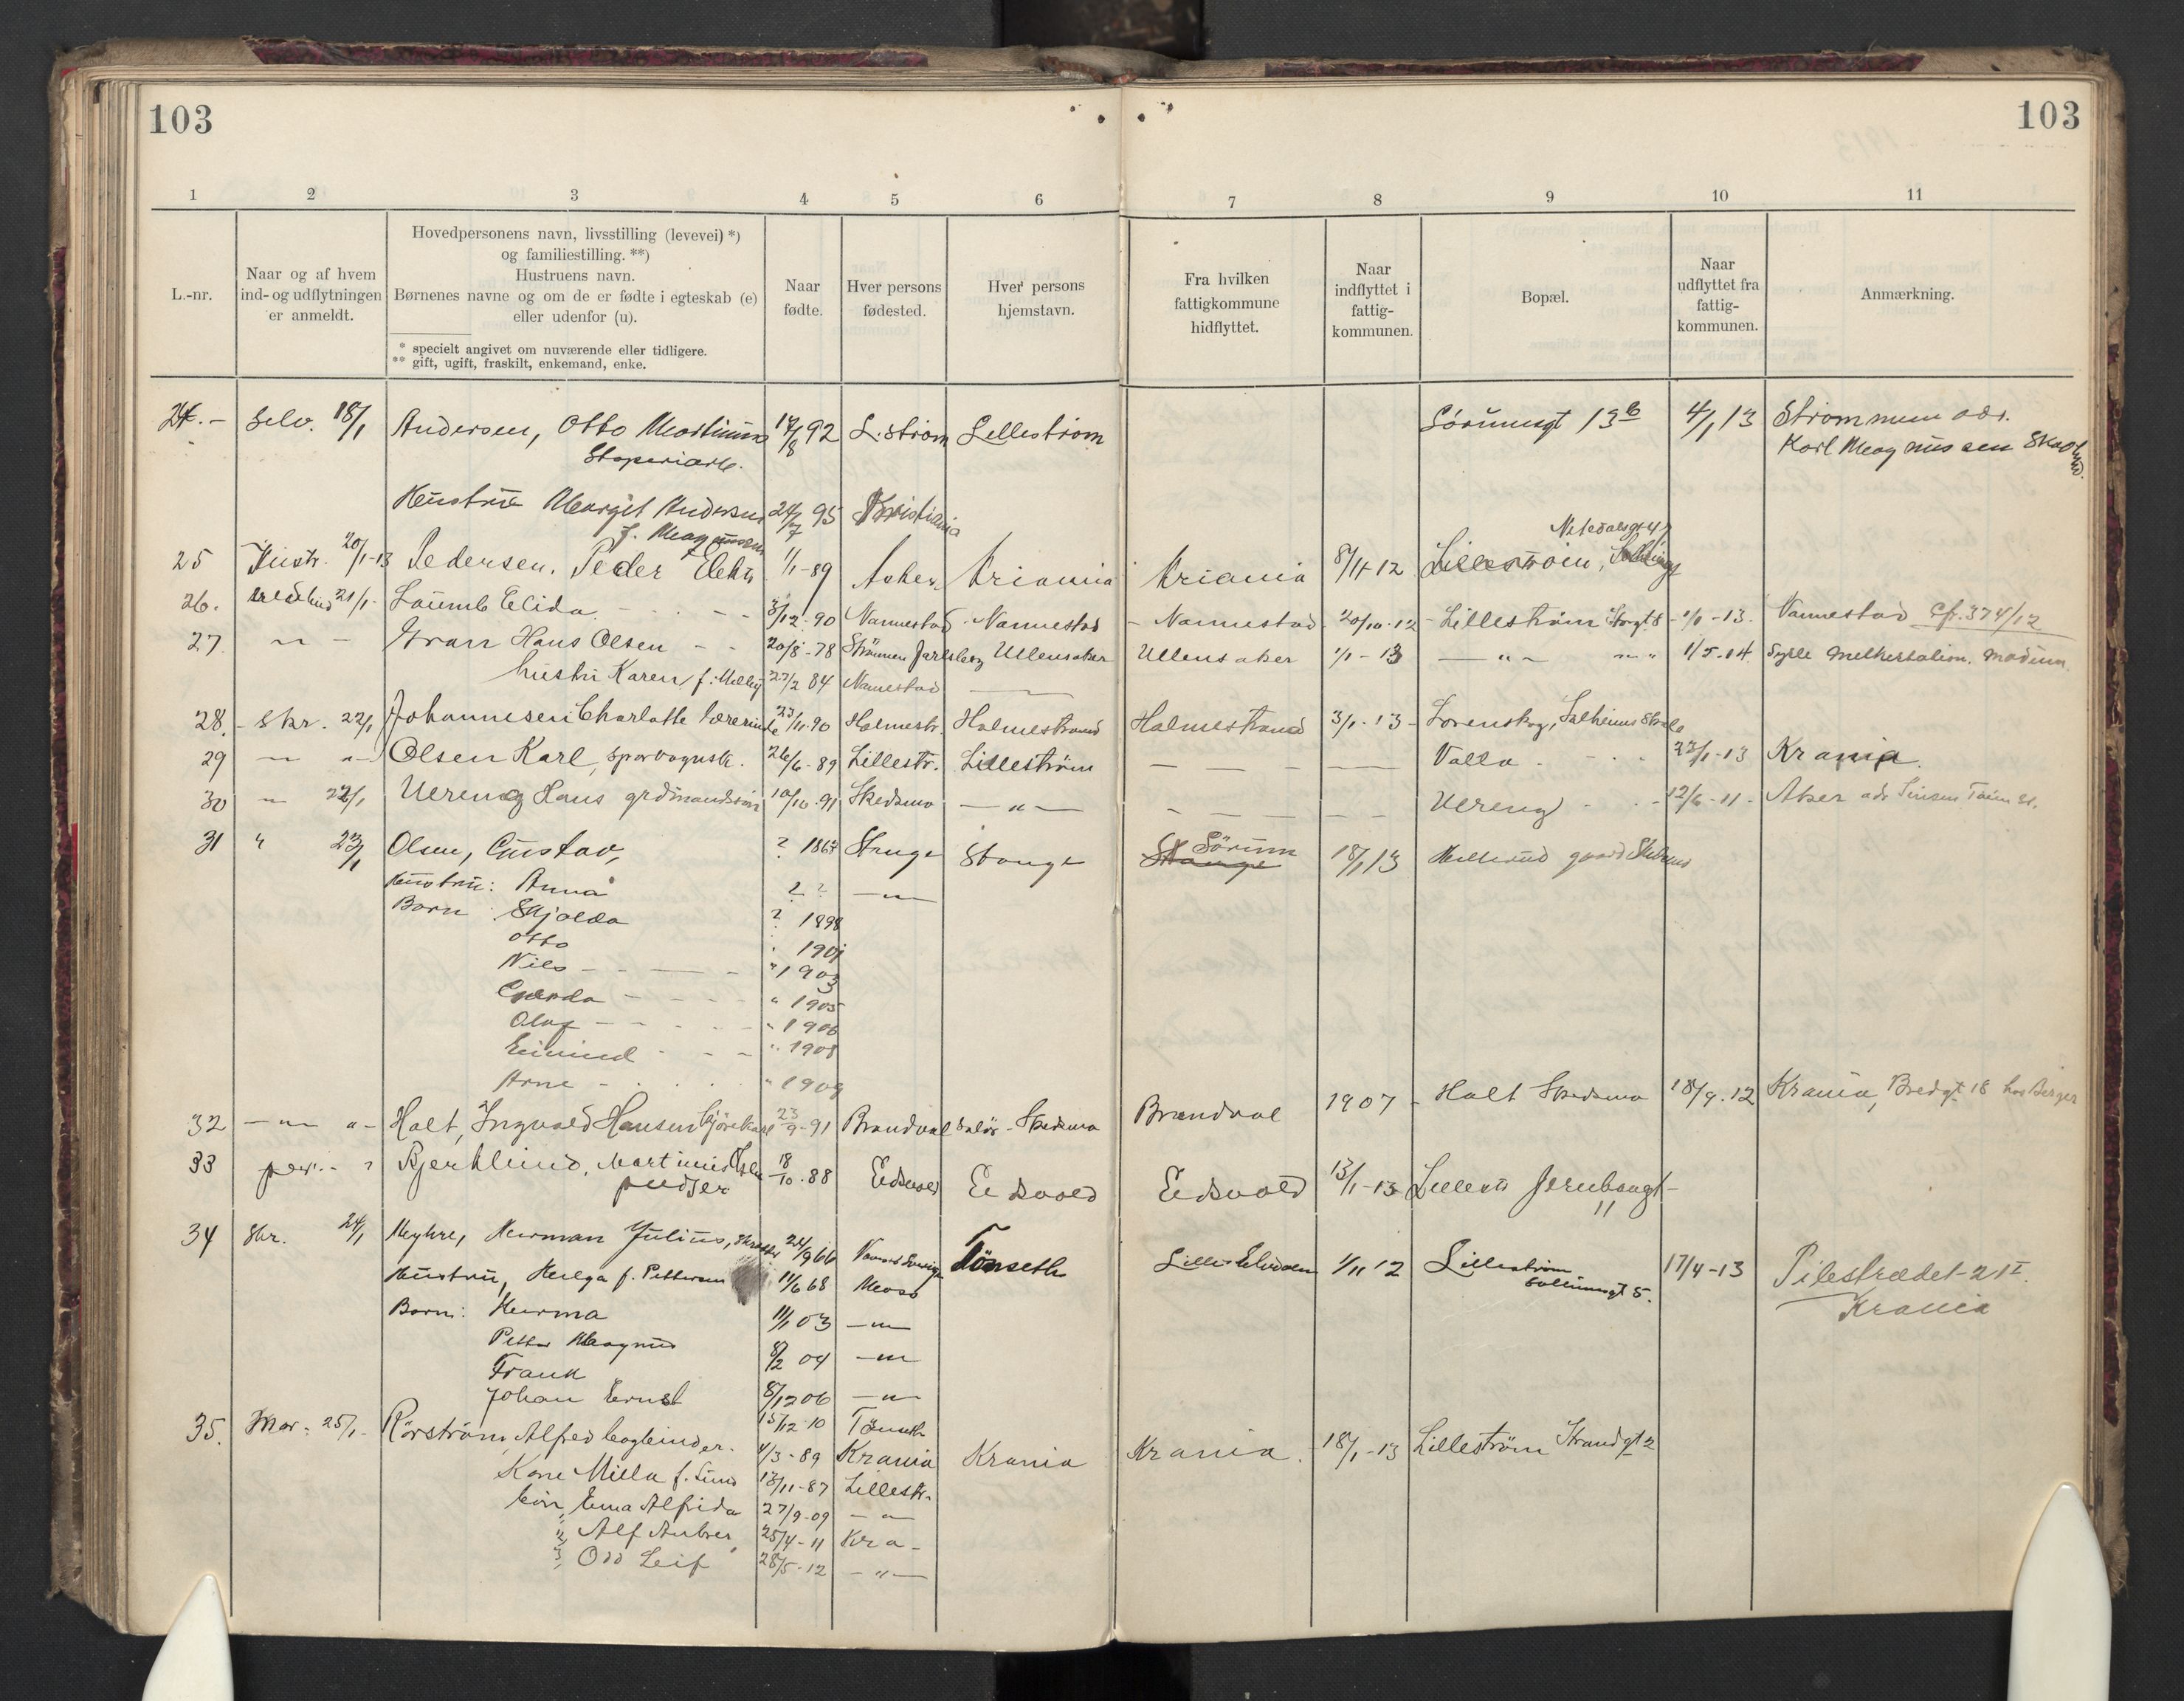 103
103
1 2 3 4 5 6 7 8 9 10 11
L.-nr.
Naar og af hvem
ind- og udflytningen
er anmeldt.
Hovedpersonens navn, livsstilling (levevei) *)
og familiestilling. **)
Hustruens navn.
Børnenes navne og om de er fødte i egteskab (e)
eller udenfor (u).
* specielt angivet om nuværende eller tidligere.
** gift, ugift, fraskilt, enkemand, enke.
Naar
fødte.
Hver persons
fødested.
Hver persons
hjemstavn.
Fra hvilken
fattigkommune
hidflyttet.
Naar
indflyttet i
fattig-
kommunen.
Bopæl.
Naar
udflyttet fra
fattig-
kommunen.
Anmærkning.
24.- Selv. 18/1 Andersen, Otto Martinius 17/8 92 L.strøm Lillestrøm Sörumsgt 13b 4/1 13 Strømmen adr.
Støperiarb. Karl Magnussen
Hustrue Margit Andersen 24/7 95 Kristiania
f. Magnussen
25 20/1-13 Pedersen, Peder Elektr. 1/1-89 Asker Kriania Kriania 8/11-12 Lilleström,
26. 21/1- Laumb Elida 3/12-90 Nannestad Nannestad Nannestad 20/10-12 Lilleström Storgt. 8 1/1-13. Nannestad cfr. 374/12
27 Gran Hans Olsen 20/8-78 Strömmen Jarlsberg Ullensaker Ullensaker 1/1-13 1/5-14 Melkestation. Modum.
hustr. Karen f. 27/2 84 Nannestad
28. Skr. 22/1 Johannesen Charlotte lærerinde 23/11-90 Holmestr. Holmestrand Holmestrand 3/1-13 Lorenskog, Solheims Skole
29 " Olsen Karl, sporvognsk. 26/6-89 Lillestr. Lilleström Valla 22/1-13 Krania.
30 " 22/1 Vereng Hans grdmandssön 10/10-91 Skedsmo " Vereng 12/6-11 Aker adr Sinsen
31 " 23/1 Olsen, Gustav, ? 1867 Stange Stange Stange Sörum 18/1 13 gaard Skedsmo
Hustru: Anna ? ? "
Barn: Skjolda ? 1898
Otto 1901
Nils " 1903
Gerda " 1905
Olaf " 1906
Eivind " 1908
Arne " 1909
32 " Holt, Ingvald Hansen kjörekarl 23/9-91 Brandval Solör - Skedsmo Brandval 1907 Holt Skedsmo 18/9.12 Krania, Bredgt. 18 hos Berger
33 per. Bjerklund, Martinius Olsen 18/10-88 Eidsvold Eidsvold Eidsvold 13/1-13 Lillestr. Jernbangt
pudser 11
34 Skr. 24/1 Myhre, Herman Julius, 24/9 66 Tönseth Lille Elvedalen 1/11 12 Lilleström 17/4-13 Pilestrædet-21 I.
Hustru, Helga f. Pettersen 14/6 68 Moss Sollimsgt 5. Krania
Barn: Herma 11/1 03 "
Petter Magnus 8/2 04 "
Frank 8/12 06 "
Johan Ernst 15/12-10 Tönseth
35. Mor. 25/1- Rörström, Alfred bogbinder. 4/3-89 Krania Krania Krania. 18/1-13 Lilleström Strandgt 2
Kone Milla f. Lund 13/11-87 Lillestr.
Erna Alfrida 27/9-09 "
2, Alf 25/4-11 Kra-
3, Odd Leif 28/5-12 "